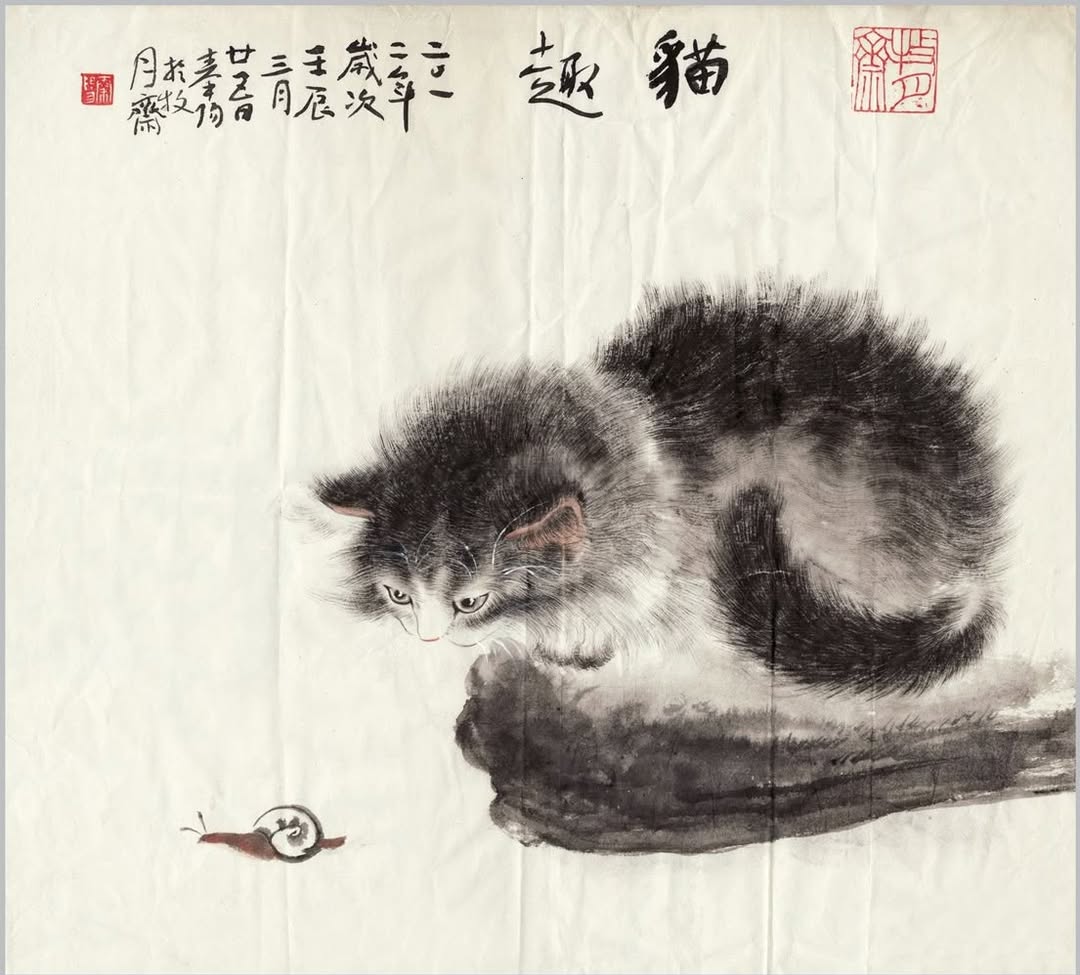 牧月齋
貓趣
二〇一
二年
歲次
壬辰
三月
廿五日
於牧
月齋